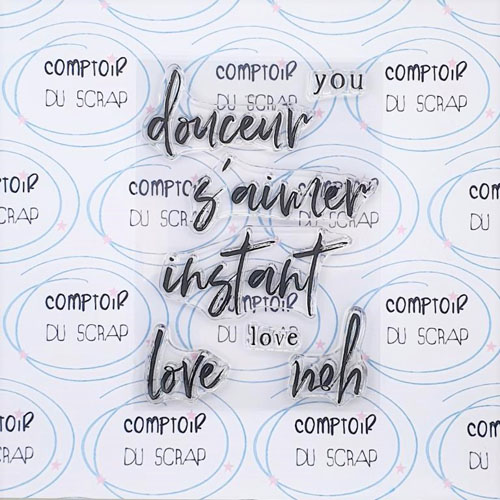 COMPTOIR
DU SCRAP
COMPTOIR
DU SCRAP
you
COMPTOIR
DU SCRAP
douceur
PTOIR
SCRAP
COMPTOIR
DU SCRAP
s'aimer
COM
DU
instant
COMPTOIR
DU SCRAP
MPTOIR
COMPTOIR
DU SCRAP
love
love
noh
PTOIR
SCRAP
COMPTOIR
DU SCRAP
COMPTOIR
DU SCRAP
COM
DU